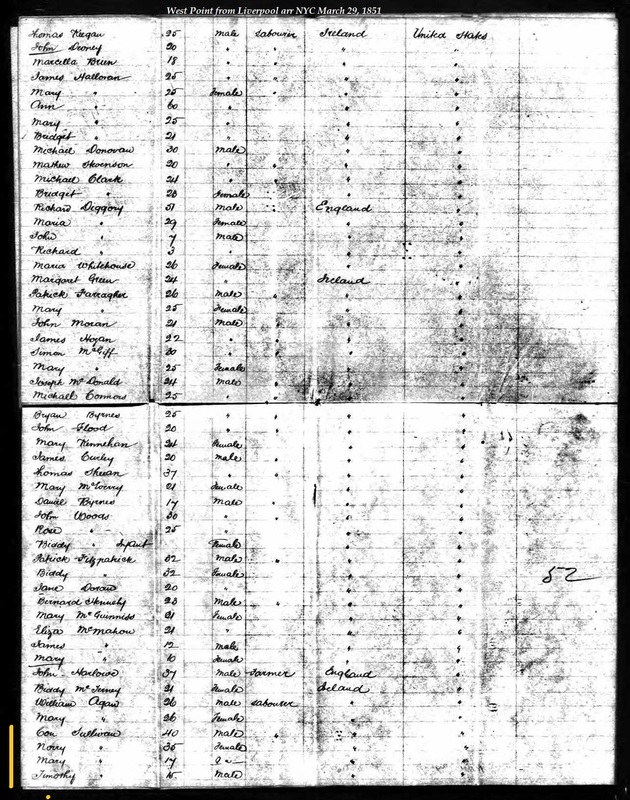 West Point from Liverpool arr NYC March 29, 1851
Thomas Keegan 25 Male Labourer Ireland United States
John 20 "
Marcella Brien 18 " "
James Halloran 25 " " "
Mary " 25 Female " " "
Ann " 60 " " "
Mary " 25 " " "
Bridget " 21 " " "
Michael Donovan 30 Male " "
Mathew 20 " " " "
Michael Clark 24 " " " "
Bridget " 28 Female " "
Richard Diggory 51 Male " England "
Maria " 29 Female " "
John " 7 Male " "
Richard " 3 " " "
Maria Whitehouse 26 Female " "
Margaret Green 24 " Ireland "
Patrick Farragher 26 Male " " "
Mary " 25 Female " "
John Moran 21 Male " " "
James Hogan 22 " " "
Simon 20 " " "
Mary " 25 Female " "
Joseph McDonald 24 Male " "
Michael Connors 25 " "
Bryan Byrnes 25 " " " "
John Flood 20 " " " "
Mary Kinnehan 24 Female " "
James Curley 20 Male " " "
Thomas 37 " " " "
Mary 21 Female " "
Daniel Byrnes 17 Male " " "
John Woods 30 " " " "
Rose " 25 " " "
Biddy " Infant Female " "
Patrick Fitzpatrick 32 Male " " "
Biddy " 32 Female " "
52
Jane Doran 20 " " "
Bernard 23 Male " " "
Mary McGuinniss 21 Female " "
Eliza McMahon 21 " " "
James " 12 Male " "
Mary " 10 Female " "
John Harlowe 37 Male Farmer England "
Biddy 21 Female Ireland "
William Agan 26 Male Labourer " "
Mary " 26 Female " "
Con Sullivan 40 Male " " "
Norry " 35 Female " "
Mary " 17 " "
Timothy " 15 Male " "